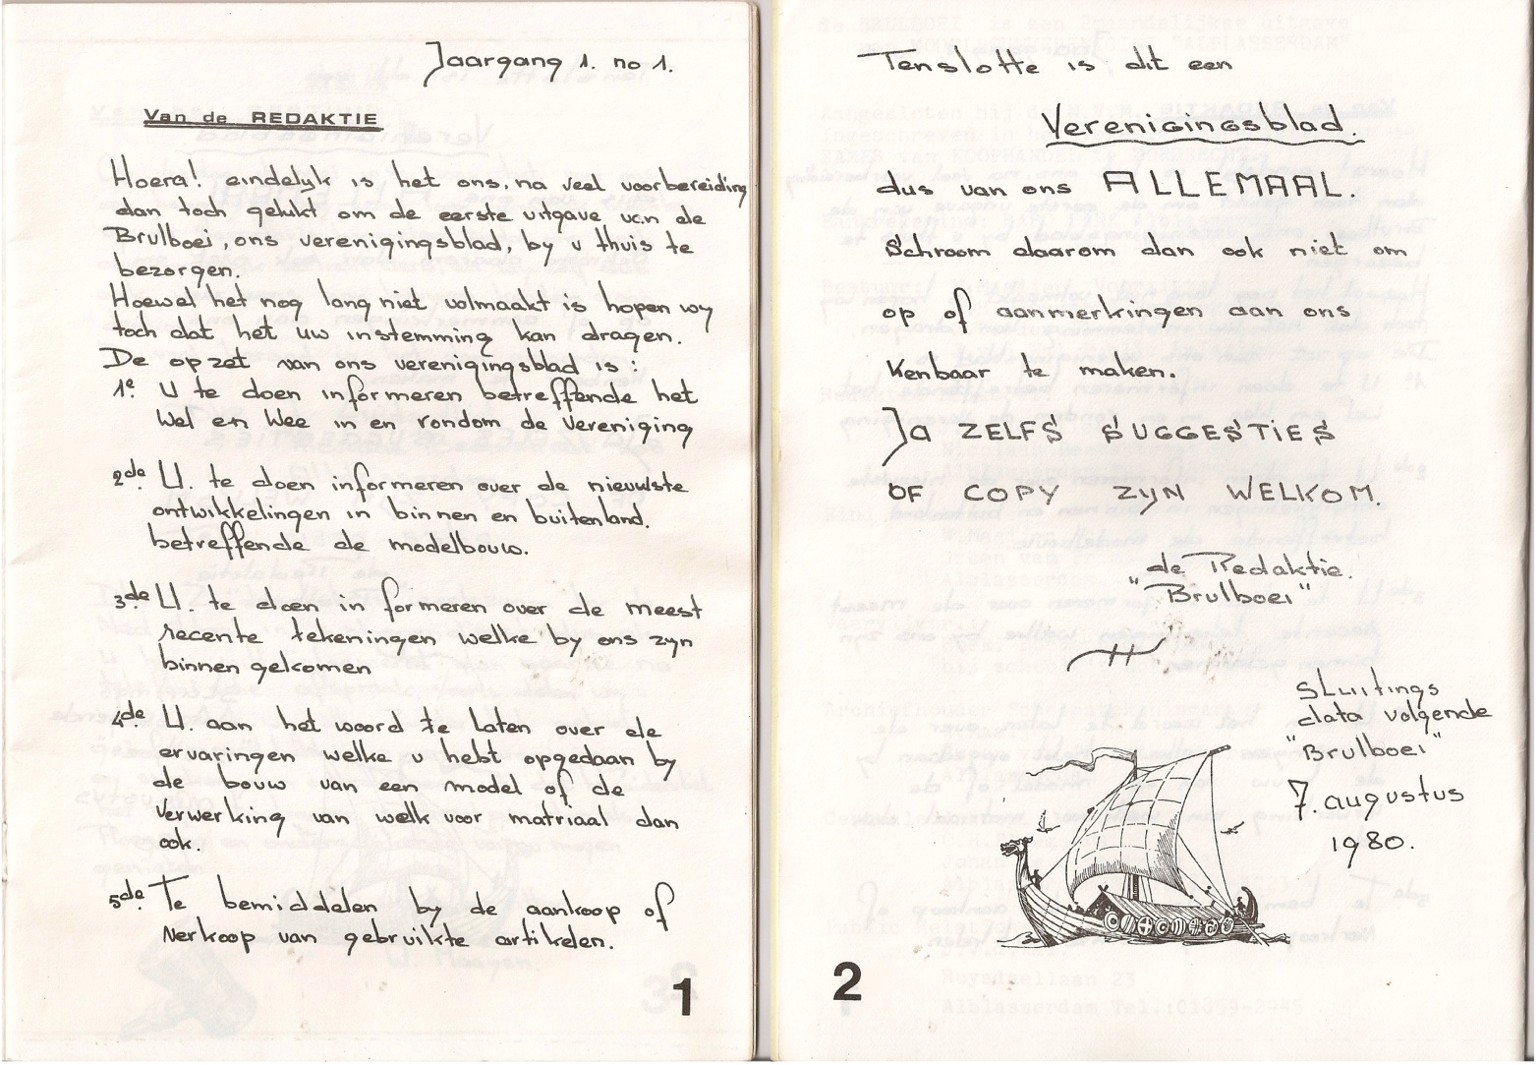 Jaargang 1. no 1.
Van de REDAKTIE
Hoera! eindelyk is het ons, na veel voorbereiding
dan toch gelukt om de eerste uitgave van de
Brulboei, ons verenigingsblad, by u thuis te
bezorgen.
Hoewel het nog lang niet volmaakt is hopen wy
toch dat het uw instemming kan dragen.
De opzet van ons verenigingsblad is :
1e. U te doen informeren betreffende het
Wel en Wee in en rondom de vereniging
2de. U. te doen informeren over de nieuwste
ontwikkelingen in binnen en buitenland.
betreffende de modelbouw.
3de U. te doen informeren over de meest
recente tekeningen welke by ons zyn
binnen gekomen
4de U. aan het woord te laten over de
ervaringen welke u hebt opgedaan by
de bouw van een model of de
verwerking van welk voor matriaal dan
ook.
5de. Te bemiddelen by de aankoop of
verkoop van gebruikte artikelen.
1
Tenslotte is dit een
Verenigingsblad.
dus van ons ALLEMAAL.
Schroom daarom dan ook niet om
op of aanmerkingen aan ons
kenbaar te maken.
Ja ZELFS SUGGESTIES
OF COPY ZYN WELKOM.
de Redaktie.
"Brulboei"
Sluitings
data volgende
"Brulboei"
7. augustus
1980.
2